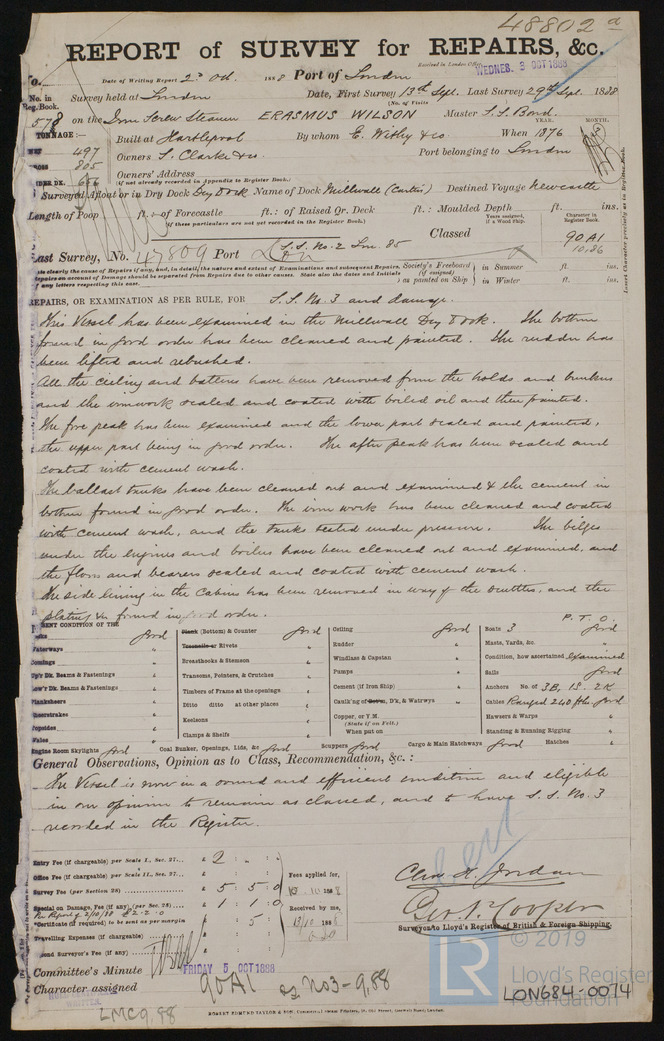 48802 a
REPORT of SURVEY for REPAIRS, &c.
Received in London Office WEDNES. 3 OCT 1888
Date of Writing Report 2nd Oct. 1888 Port of London
No. in Reg. Book. Survey held at London Date, First Survey 13th Sept. Last Survey 29th Sept. 1888
(No. of Visits
578 on the Iron Screw Steamer ERASMUS WILSON Master S. S. Bond.
TONNAGE:— Built at Hartlepool By whom E. Withy & co. When 1876
YEAR. MONTH.
NET 497 Owners S. Clarke & co Port belonging to London
GROSS 805 Owners' Address
UNDER DK. (if not already recorded in Appendix to Register Book.)
Surveyed Afloat or in Dry Dock Dry Dock Name of Dock Millwall (Curtis) Destined Voyage Newcastle
Length of Poop ft. :— of Forecastle ft. :— of Raised Qr. Deck ft. : Moulded Depth ft. ins.
(if these particulars are not yet recorded in the Register Book.)
Years assigned, if a Wood Ship.
Character in Register Book.
Classed 90A1
10.86
Last Survey, No. 47809 Port Lon S.S. No. 2 Lon. 85
Society's Freeboard (if assigned) as painted on Ship in Summer ft. ins.
in Winter ft. ins.
REPAIRS, OR EXAMINATION AS PER RULE, FOR S.S. No. 3 and damage.
This Vessel has been examined in the Millwall Dry Dock. The bottom
found in good order has been cleaned and painted. The rudder has
been lifted and rebushed.
All the ceiling and battens have been removed from the holds and bunkers
and the ironwork scaled and coated with boiled oil and then painted.
The fore peak has been examined and the lower part scaled and painted,
the upper part being in good order. The after peak has been scaled and
coated with cement wash.
The ballast tanks have been cleaned out and examined & the cement in
bottom found in good order. The iron work has been cleaned and coated
with cement wash, and the tanks tested under pressure. The bilges
under the engines and boilers have been cleaned out and examined, and
the floors and bearers scaled and coated with cement wash.
The side lining in the Cabins has been removed in way of the scuttles, and the
plating &c found in good order.
P. T. O.
PRESENT CONDITION OF THE
Decks good
Waterways "
Comings "
Up'r Dk. Beams & Fastenings "
Low'r Dk. Beams & Fastenings "
Planksheers "
Sheerstrakes "
Topsides "
Wales "
Plank (Bottom) & Counter good
Treenails or Rivets "
Breasthooks & Stemson "
Transoms, Pointers, & Crutches "
Timbers of Frame at the openings "
Ditto ditto at other places "
Keelsons "
Clamps & Shelfs "
Ceiling good
Rudder "
Windlass & Capstan "
Pumps "
Cement (if Iron Ship) "
Caulk'ng of Seams, D'k, & Watrwys "
Copper, or Y.M. (State if on Felt.)
When put on
Boats 3 good
Masts, Yards, &c. "
Condition, how ascertained examined
Sails good
Anchors No. of 3B, 1S, 2K
Cables Ranged 240 fths good
Hawsers & Warps "
Standing & Running Rigging "
Engine Room Skylights good Coal Bunker, Openings, Lids, &c good Scuppers good Cargo & Main Hatchways good Hatches "
General Observations, Opinion as to Class, Recommendation, &c. :
The Vessel is now in a sound and efficient condition and eligible
in our opinion to remain as classed, and to have S. S. No. 3
recorded in the Register.
Entry Fee (if chargeable) per Scale I., Sec. 27... £ 2 : - :
Office Fee (if chargeable) per Scale II., Sec. 27... £ : :
Survey Fee (per Section 28) £ 5 : 5 : 0
Special on Damage, Fee (if any), (per Sec. 28) £ 1 : 1 : 0
Per Report of 2/10/88 £2-2-0
Certificate (if required) to be sent as per margin : 5 :
Travelling Expenses (if chargeable) £ : :
Second Surveyor's Fee (if any) £ : :
Fees applied for,
Received by me,
13/10 1888
Chas. H. Jordan
Geo. N. Cooper
Surveyor to Lloyd's Register of British & Foreign Shipping.
Committee's Minute FRIDAY 5 OCT 1888
Character assigned 90A1
SS No3 - 9.88
LMC 9.88
cert
ROBERT EDMUND TAYLOR & SON
© 2019
LR
Lloyd's Register
Foundation
LON684-0074